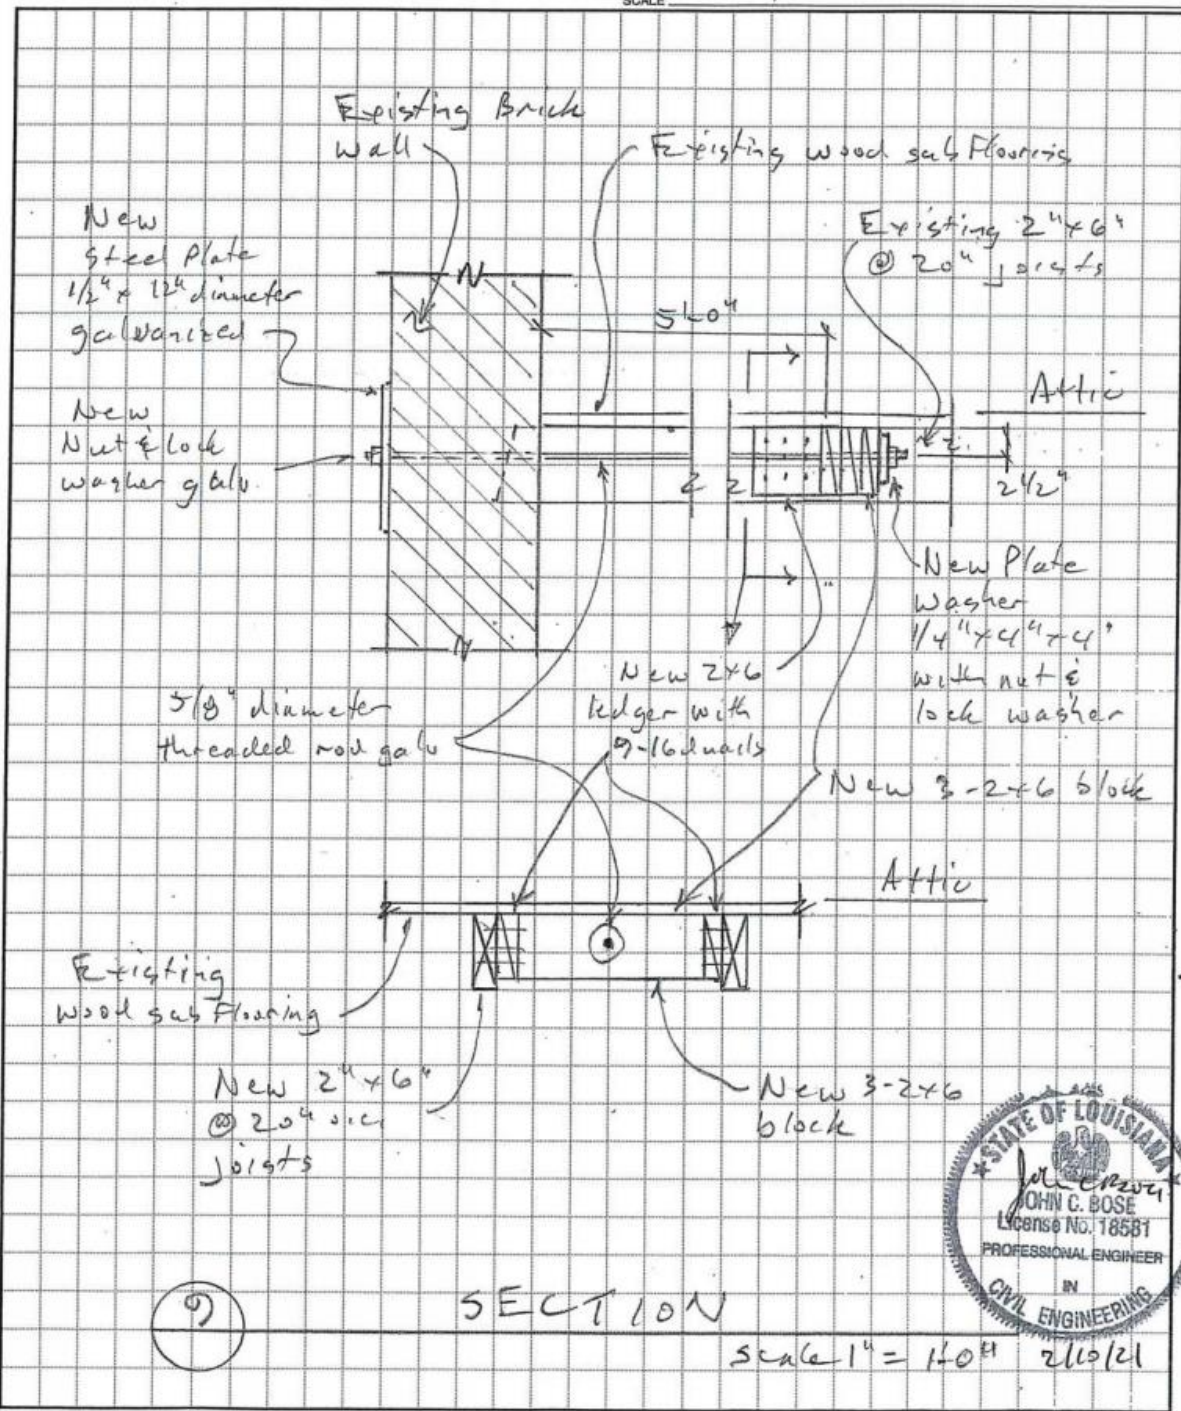 SCALE
Existing Brick
wall
Existing wood sub Flooring
New
Steel Plate
1/2" x 12" diameter
galvanized
Existing 2"x6"
@ 20" joists
5'-0"
Attic
New
Nut & lock
washer galv.
2 1/2"
New Plate
washer
1/4"x4"x4"
with nut &
lock washer
New 2x6
ledger with
9-16d nails
5/8" diameter
threaded rod galv
New 3-2x6 block
Attic
Existing
wood sub Flooring
New 2"x6"
@ 20" o.c.
joists
New 3-2x6
block
STATE OF LOUISIANA
JOHN C. BOSE
License No. 18581
PROFESSIONAL ENGINEER
IN
CIVIL ENGINEERING
9
SECTION
scale 1" = 1'-0"
2/10/21